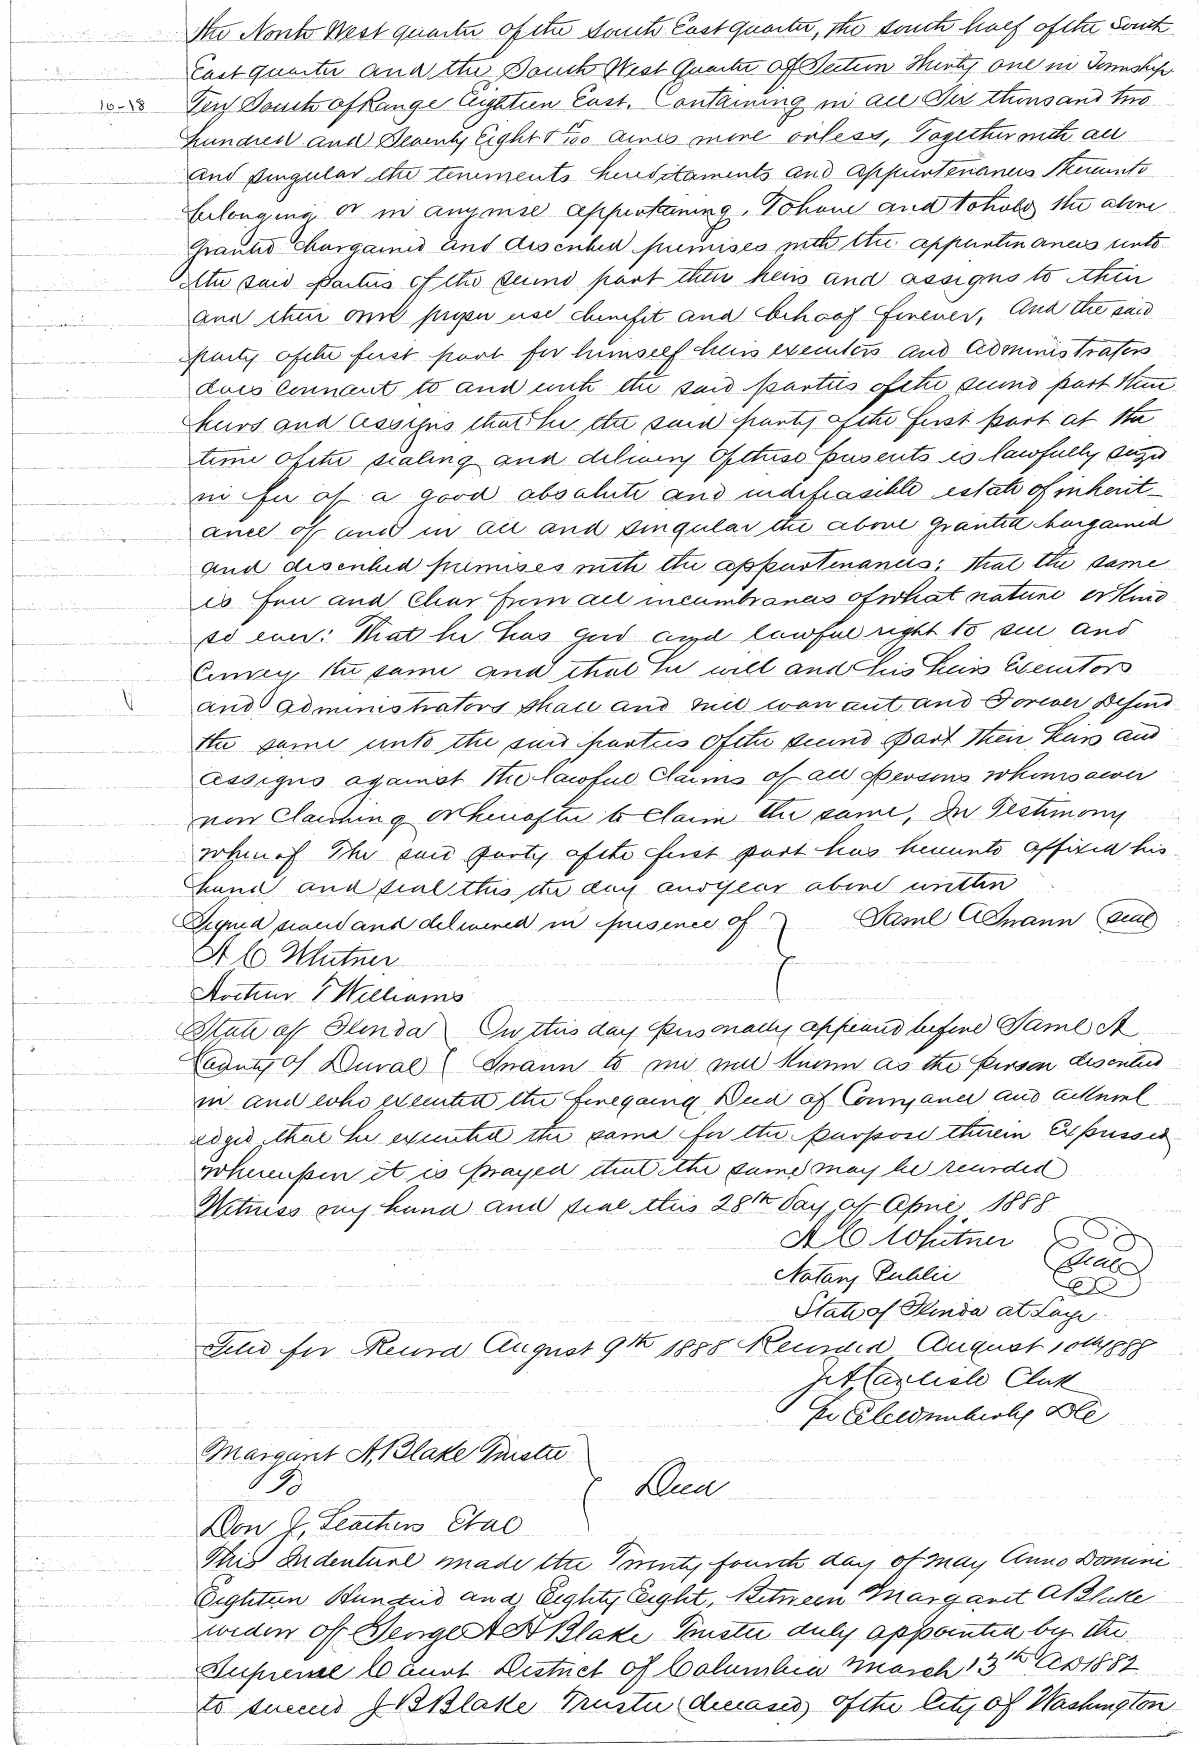 the North West quarter of the South East quarter, the south half of the South
East quarter and the South West Quarter of Section Thirty one in Township
10-18 Ten South of Range Eighteen East. Containing in all Six thousand two
hundred and Seventy Eight & /100 acres more or less, Together with all
and singular the tenements hereditaments and appurtenances thereunto
belonging or in anywise appertaining. To have and to hold the above
Granted bargained and described premises with the appurtenances unto
the said parties of the second part their heirs and assigns to their
and their own proper use benefit and behoof forever, And the said
party of the first part for himself heirs executors and administrators
does covenant to and with the said parties of the second part their
heirs and assigns that he the said party of the first part at the
time of the sealing and delivery of these presents is lawfully seized
in fee of a good absolute and indefeasible estate of inherit-
ance of and in all and singular the above granted bargained
and described premises with the appurtenances; that the same
is free and clear from all incumbrances of what nature or kind
so ever: That he has good and lawful right to sell and
Convey the same and that he will and his heirs Executors
and administrators shall and will warrant and Forever Defend
the same unto the said parties of the second part their heirs and
assigns against the lawful claims of all persons whomsoever
now claiming or hereafter to claim the same, In Testimony
whereof The said party of the first part has hereunto affixed his
hand and seal this the day and year above written
Signed sealed and delivered in presence of } Saml A Swann (seal)
A C Whitner
Arthur T Williams
State of Florida } On this day personally appeared before Saml A
County of Duval } Swann to me well known as the person described
in and who executed the foregoing Deed of Conveyance and acknowl
edged that he executed the same for the purpose therein Expressed
whereupon it is prayed that the same may be recorded
Witness my hand and seal this 28th Day of April 1888
A C Whitner
Notary Public (Seal)
State of Florida at Large
Filed for Record August 9th 1888 Recorded August 10th 1888
Carlisle Clerk
DC
Margaret A. Blake Trustee
To } Deed
Don J. Leathers Etal
This Indenture made the Twenty fourth day of May Anno Domini
Eighteen Hundred and Eighty Eight, Between Margaret A Blake
widow of George A H Blake Trustee duly appointed by the
Supreme Court District of Columbia March 13th AD 1882
to succeed J B Blake Trustee (deceased) of the City of Washington